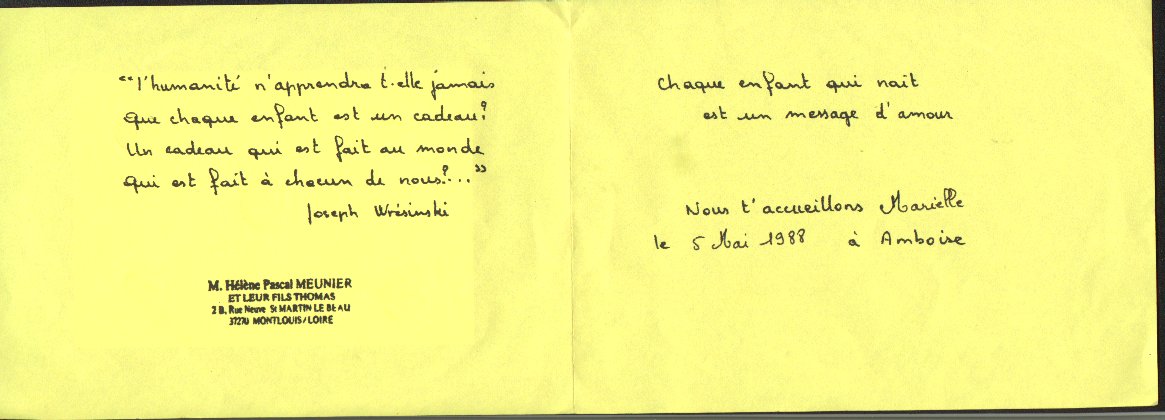 "l'humanité n'apprendra t-elle jamais
Que chaque enfant est un cadeau?
Un cadeau qui est fait au monde
Qui est fait à chacun de nous?..."
Joseph Wrésinski
M. Hélène Pascal MEUNIER
ET LEUR FILS THOMAS
2 B, Rue Neuve St MARTIN LE BEAU
37270 MONTLOUIS/LOIRE
Chaque enfant qui nait
est un message d'amour
Nous t'accueillons Marielle
le 5 Mai 1988 à Amboise